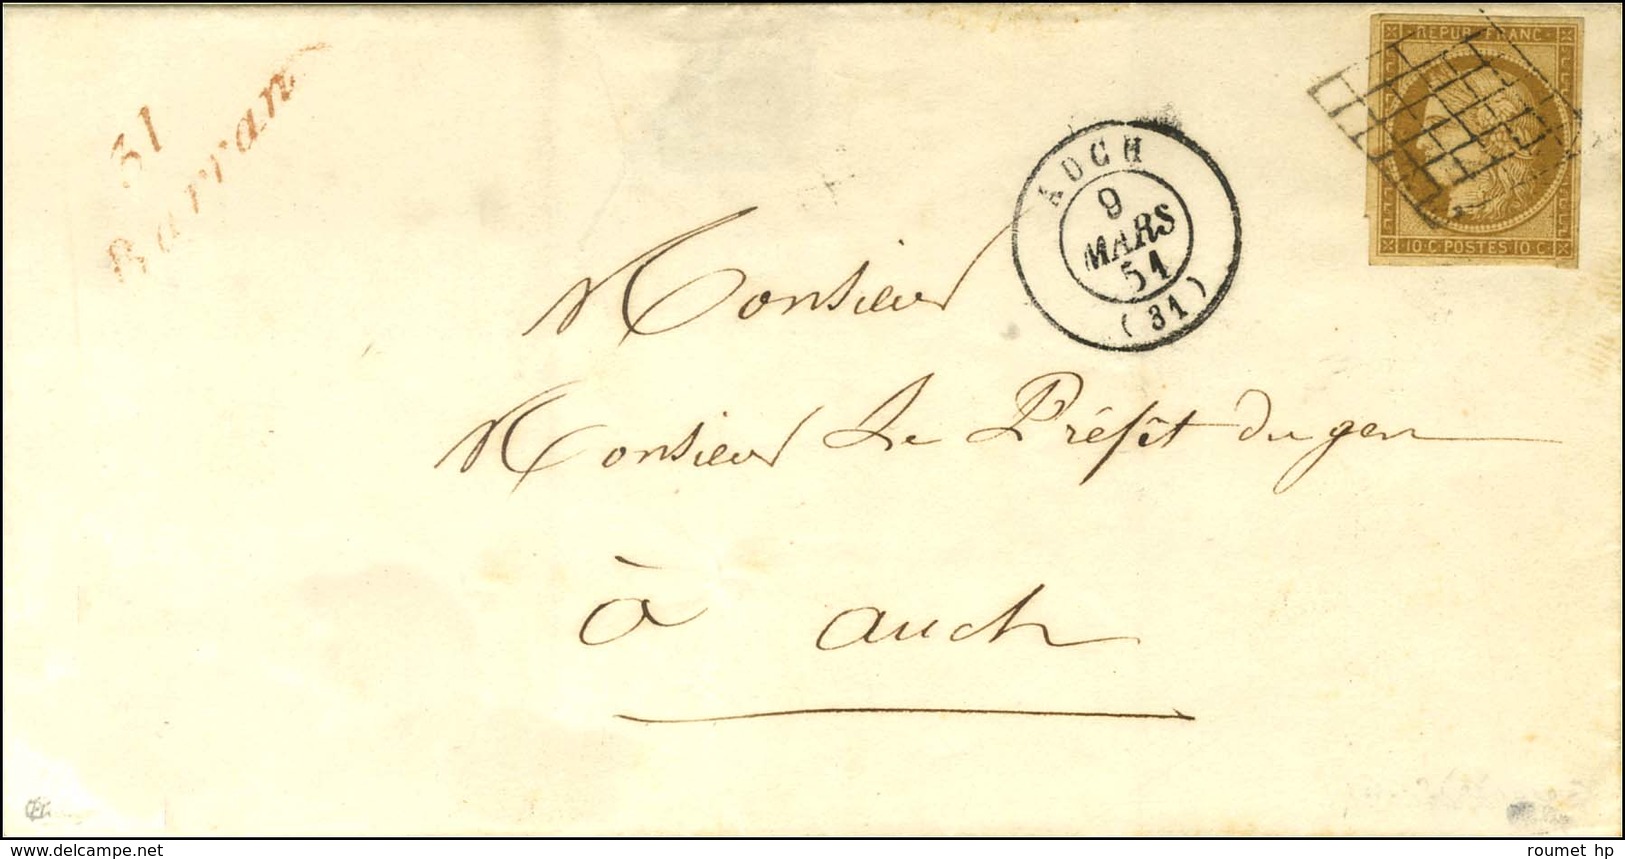 31
Barran
REPUB. FRANC.
10 C. POSTES 10 C.
AUCH
9
MARS
51
(31)
Monsieur
Monsieur Le Préfêt du gers
à auch
www.delcampe.net
roumet hp